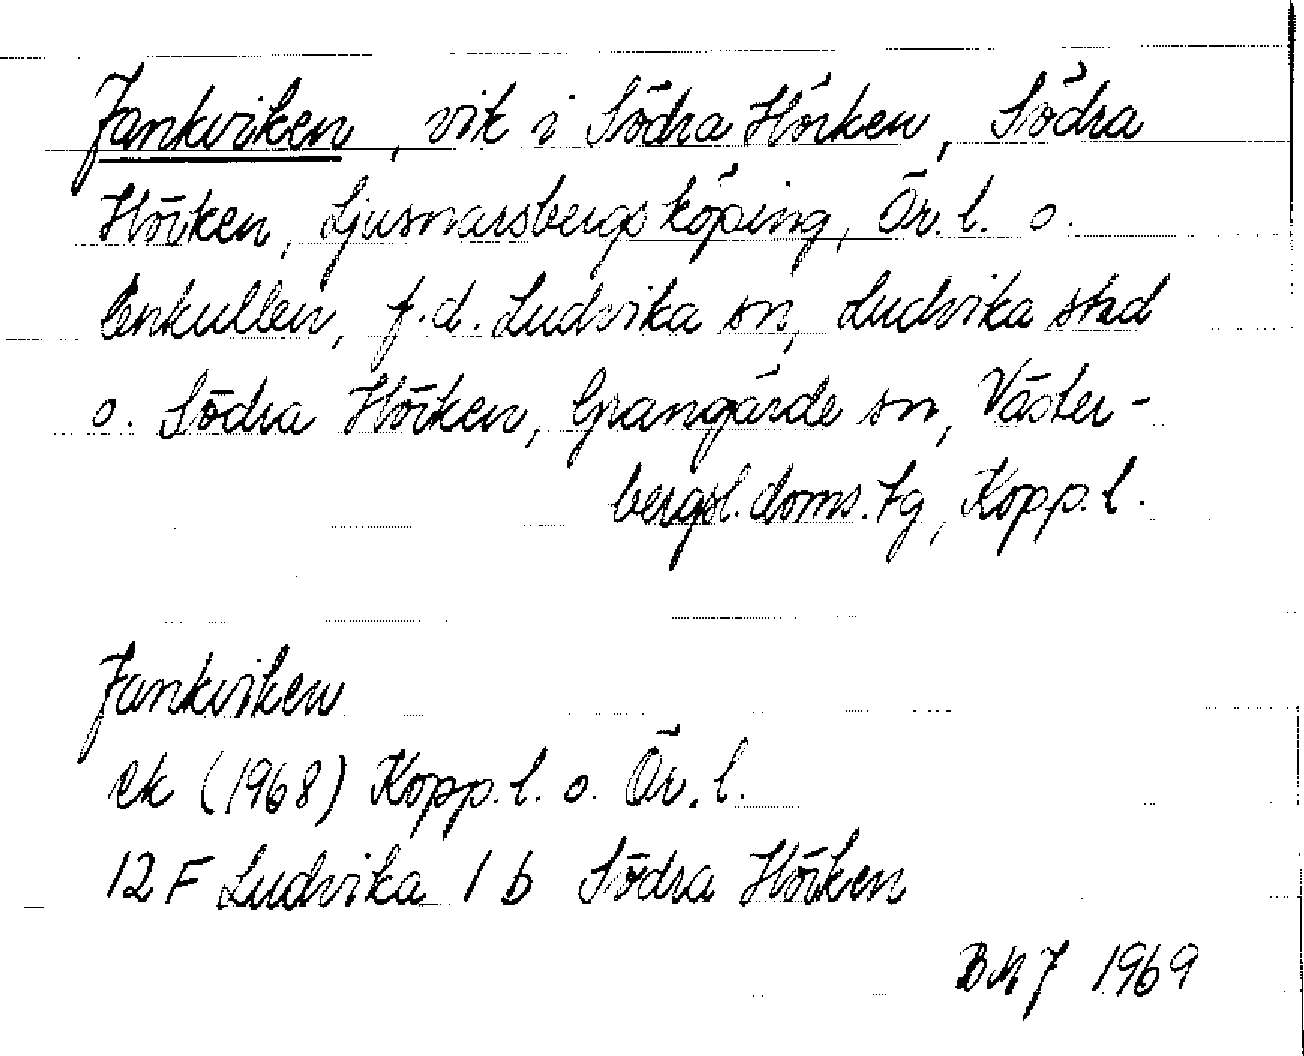 Jankviken, vik i Södra Hörken, Södra
Hörken, Ljusnarsbergs köping, Ör. l. o.
Enkullen, f.d. Ludvika sn, Ludvika stad
o. Södra Hörken, Grangärde sn, Väster-
bergsl. doms. tg, Kopp. l.
Jankviken
ek (1968) Kopp. l. o. Ör. l.
12 F Ludvika 1 b Södra Hörken
BMJ 1969